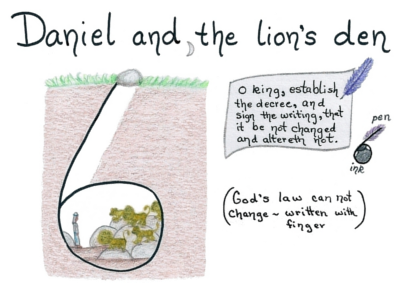 Daniel and the lion's den
O king, establish
the decree, and
sign the writing, that
it be not changed
and altereth not.
pen
ink
(God's law can not
change ~ written with
finger)